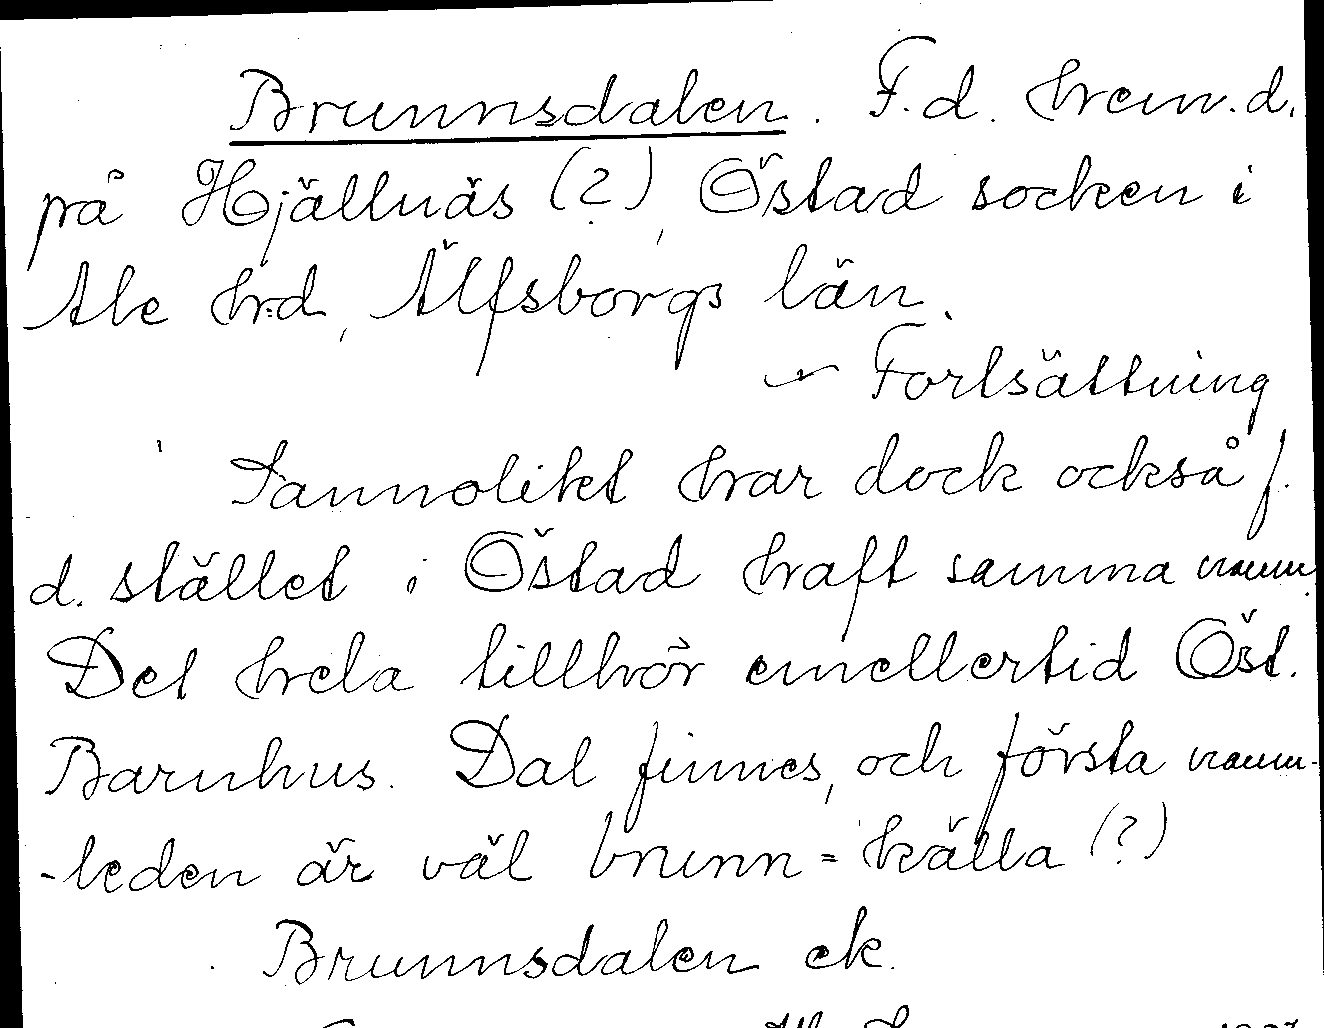 Brunnsdalen. F.d. hem.d.
på Hjällnäs (?), Östad socken i
Ale hrd, Älfsborgs län.
~ Fortsättning
Sannolikt har dock också f.
d. stället i Östad haft samma namn.
Det hela tillhör emellertid Öst.
Barnhus. Dal finnes, och första namn-
-leden är väl brunn = källa (?)
Brunnsdalen ek.